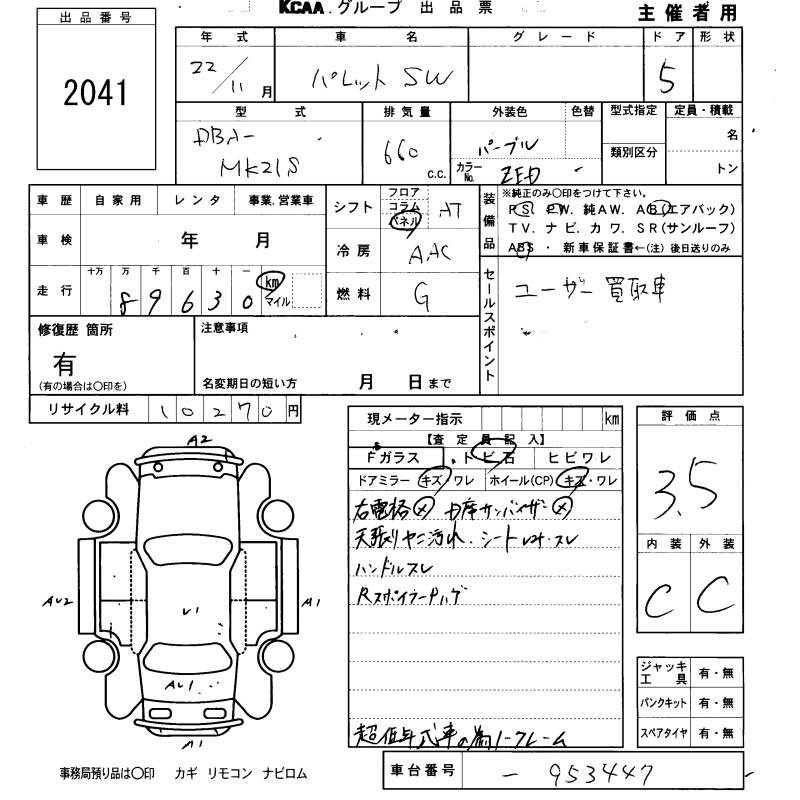 出品番号
2041
KCAA.グループ 出品票
主催者用
年式 車名 グレード ドア 形状
22/11月 パレット SW 5
型式 排気量 外装色 色替 型式指定 定員・積載
DBA-
MK21S
660 c.c.
パープル
カラーNo. ZED
類別区分
名
トン
車歴 自家用 レンタ 事業.営業車
車検 年 月
走行 十万 万 千 百 十 一
8 9 6 3 0 km マイル
シフト フロア コラム パネル AT
冷房 AAC
燃料 G
装備品
※純正のみ○印をつけて下さい。
PS. PW. 純AW. AB(エアバック)
TV. ナビ. カワ. SR(サンルーフ)
ABS ・ 新車保証書←(注) 後日送りのみ
セールスポイント
ユーザー買取車
修復歴 箇所
有
(有の場合は○印を)
注意事項
名変期日の短い方 月 日まで
リサイクル料 10270円
現メーター指示 km
【査定員記入】
Fガラス ・トビ石 ヒビワレ
ドアミラー キズ・ワレ ホイール(CP) キズ・ワレ
右電格(×) 助席サンバイザー(×)
天張りヤニ汚れ.シートコゲ・スレ
ハンドルスレ
Rスポイラーハゲ
超低年式車の為ノークレーム
評価点
3.5
内装 外装
C C
ジャッキ工具 有・無
パンクキット 有・無
スペアタイヤ 有・無
A2
AU2
U1
A1
AU1
A1
事務局預り品は○印 カギ リモコン ナビロム
車台番号 - 953447